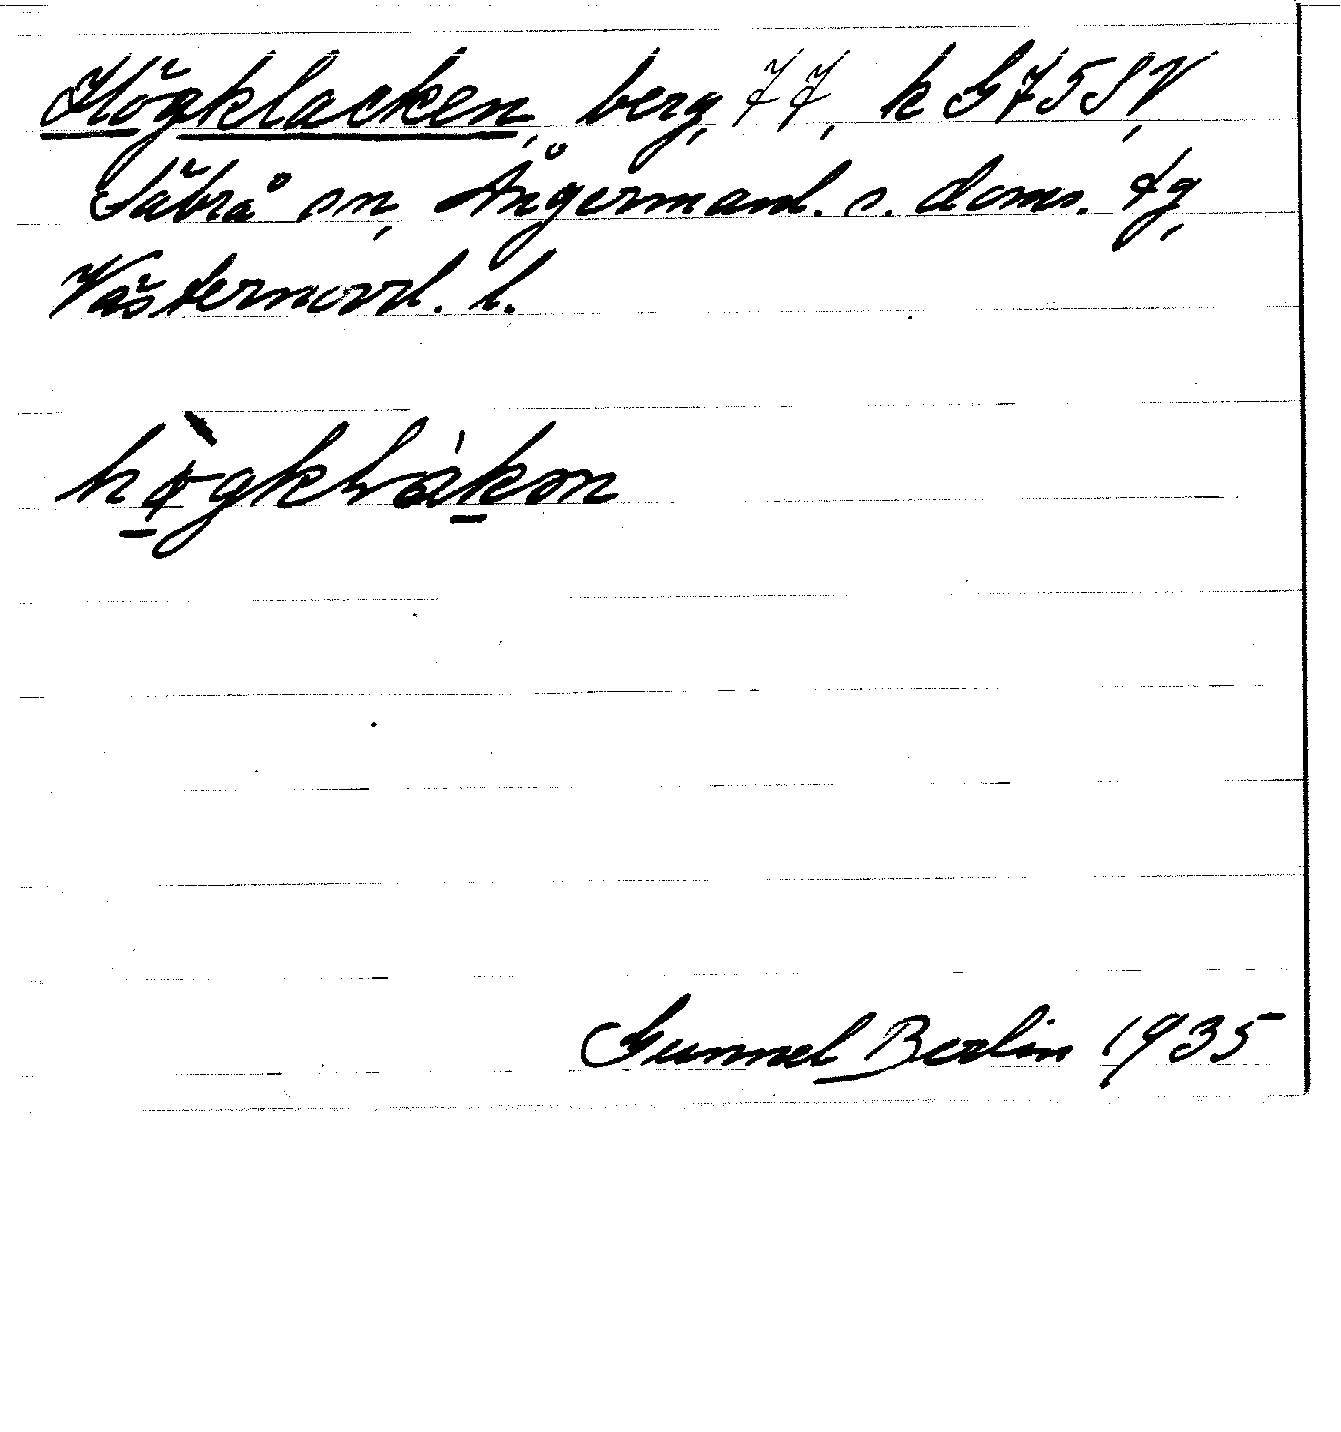 Högklacken, berg, 77, k G75SV,
Säbrå sn, Ångermanl. s. doms. tg,
Västernorrl. l.
hø̀gkḷákən
Gunnel Berlin 1935